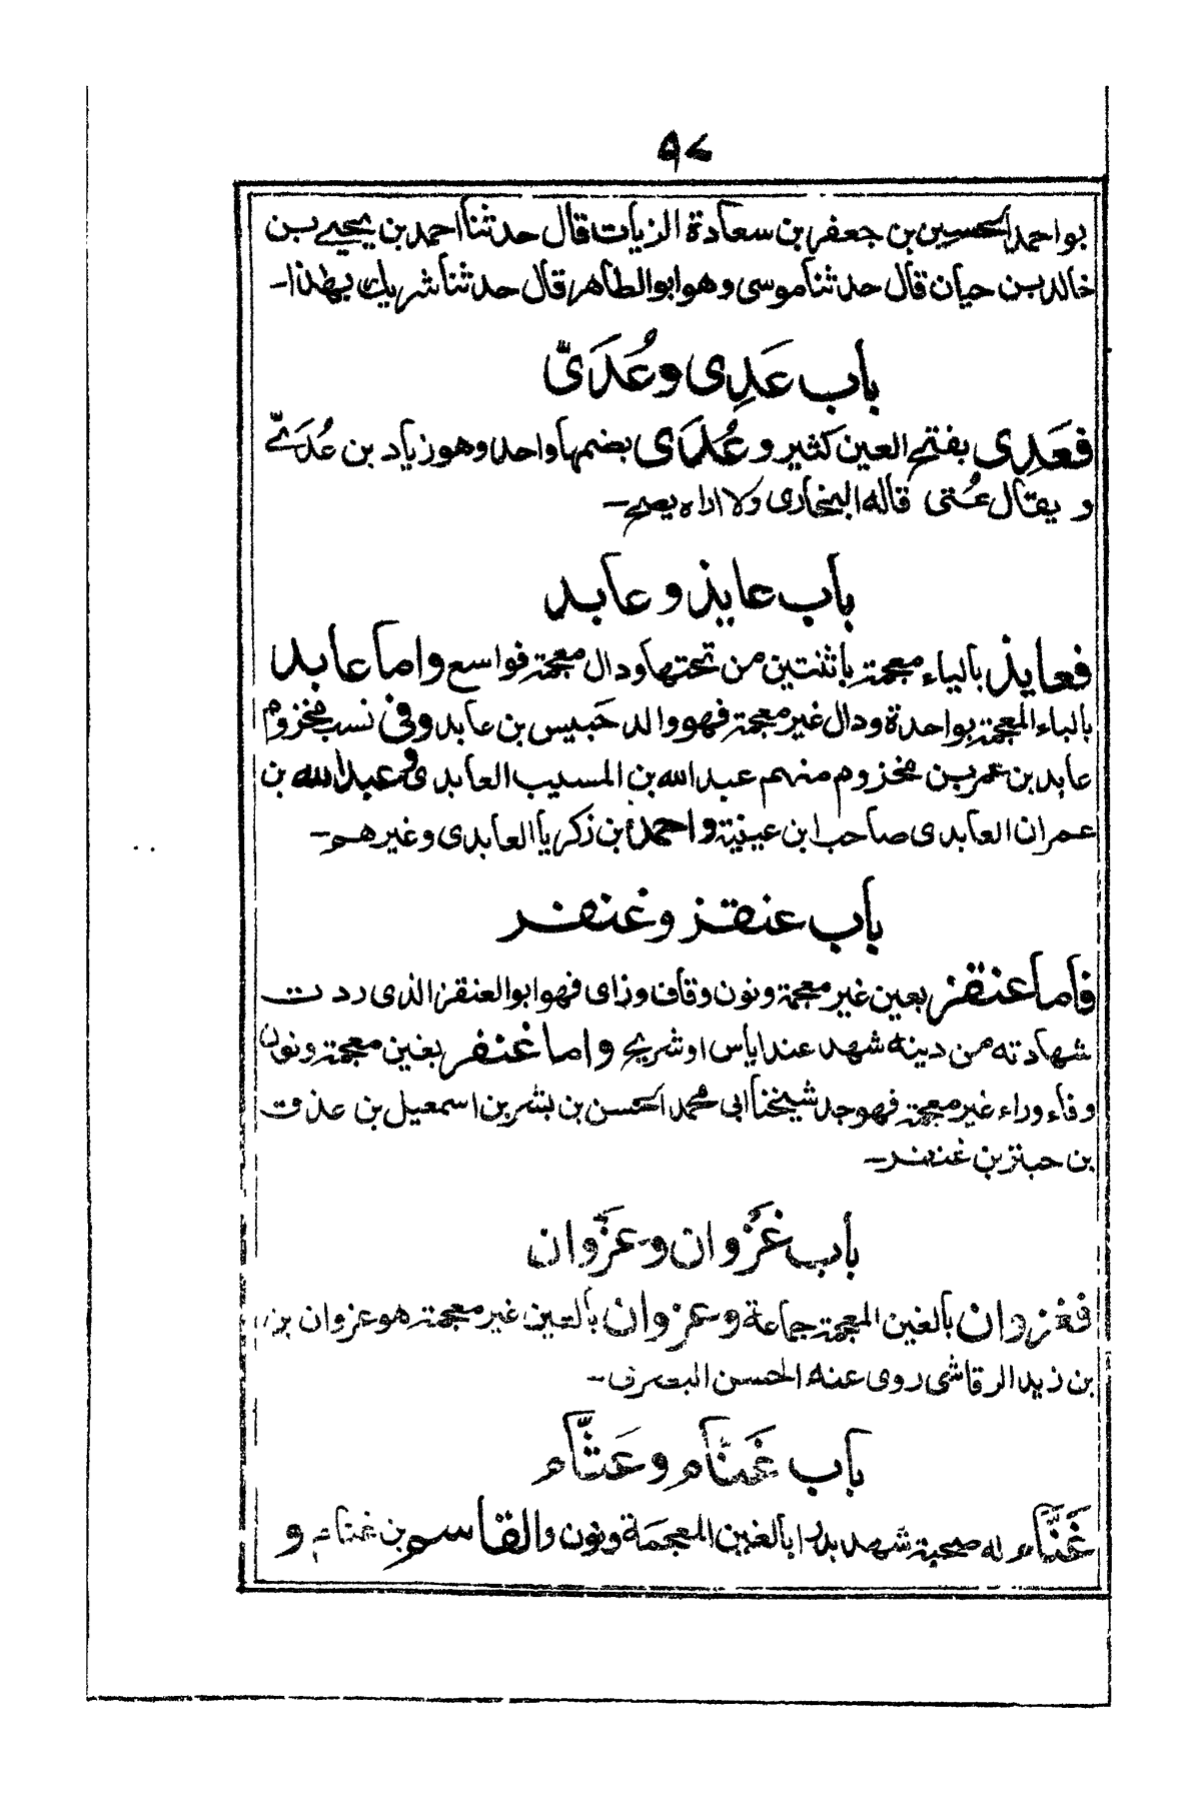 ٩٨
بو احمد الحسين بن جعفر بن سعادة الزيات قال حدثنا احمد بن يحيى بن
خالد بن حيان قال حدثنا موسى وهو ابو الطاهر قال حدثنا شريك بهذا-
باب عَدِى وعُدَىّ
فعَدِى بفتح العين كثير وعُدَى بضمها واحد وهو زياد بن عُدَىّ
ويقال عُتى قاله البخارى ولا اراه يصح-
باب عايذ وعابد
فعايذ بالياء معجمة باثنتين من تحتها ودال معجمة فواسع واما عابد
بالباء المعجمة بواحدة ودال غير معجمة فهو والد حَبيس بن عابد وفى نسب مخزوم
عابد بن عمر بن مخزوم منهم عبد الله بن المسيب العابدى وعبد الله بن
عمران العابدى صاحب ابن عيينة واحمد بن زكريا العابدى وغيرهم-
باب عنقز وغنفر
فاما عنقز بعين غير معجمة ونون وقاف وزاى فهو ابو العنقز الذى ردت
شهادته من دينه شهد عند اياس او شريح واما غنفر بغين معجمة ونون
وفاء وراء غير معجمة فهو جد شيخنا ابى محمد الحسن بن بشر بن اسمعيل بن عذق
بن حبتر بن غنفر-
باب غَزْوان وعَزْوان
فغزوان بالغين المعجمة جماعة وعزوان بالعين غير معجمة هو عزوان بن
بن زيد الرقاشى روى عنه الحسن البصرى-
باب غَنَّام وعَثَّام
غَنَّام له صحبة شهد بدرا بالغين المعجمة ونون والقاسم بن غنام و